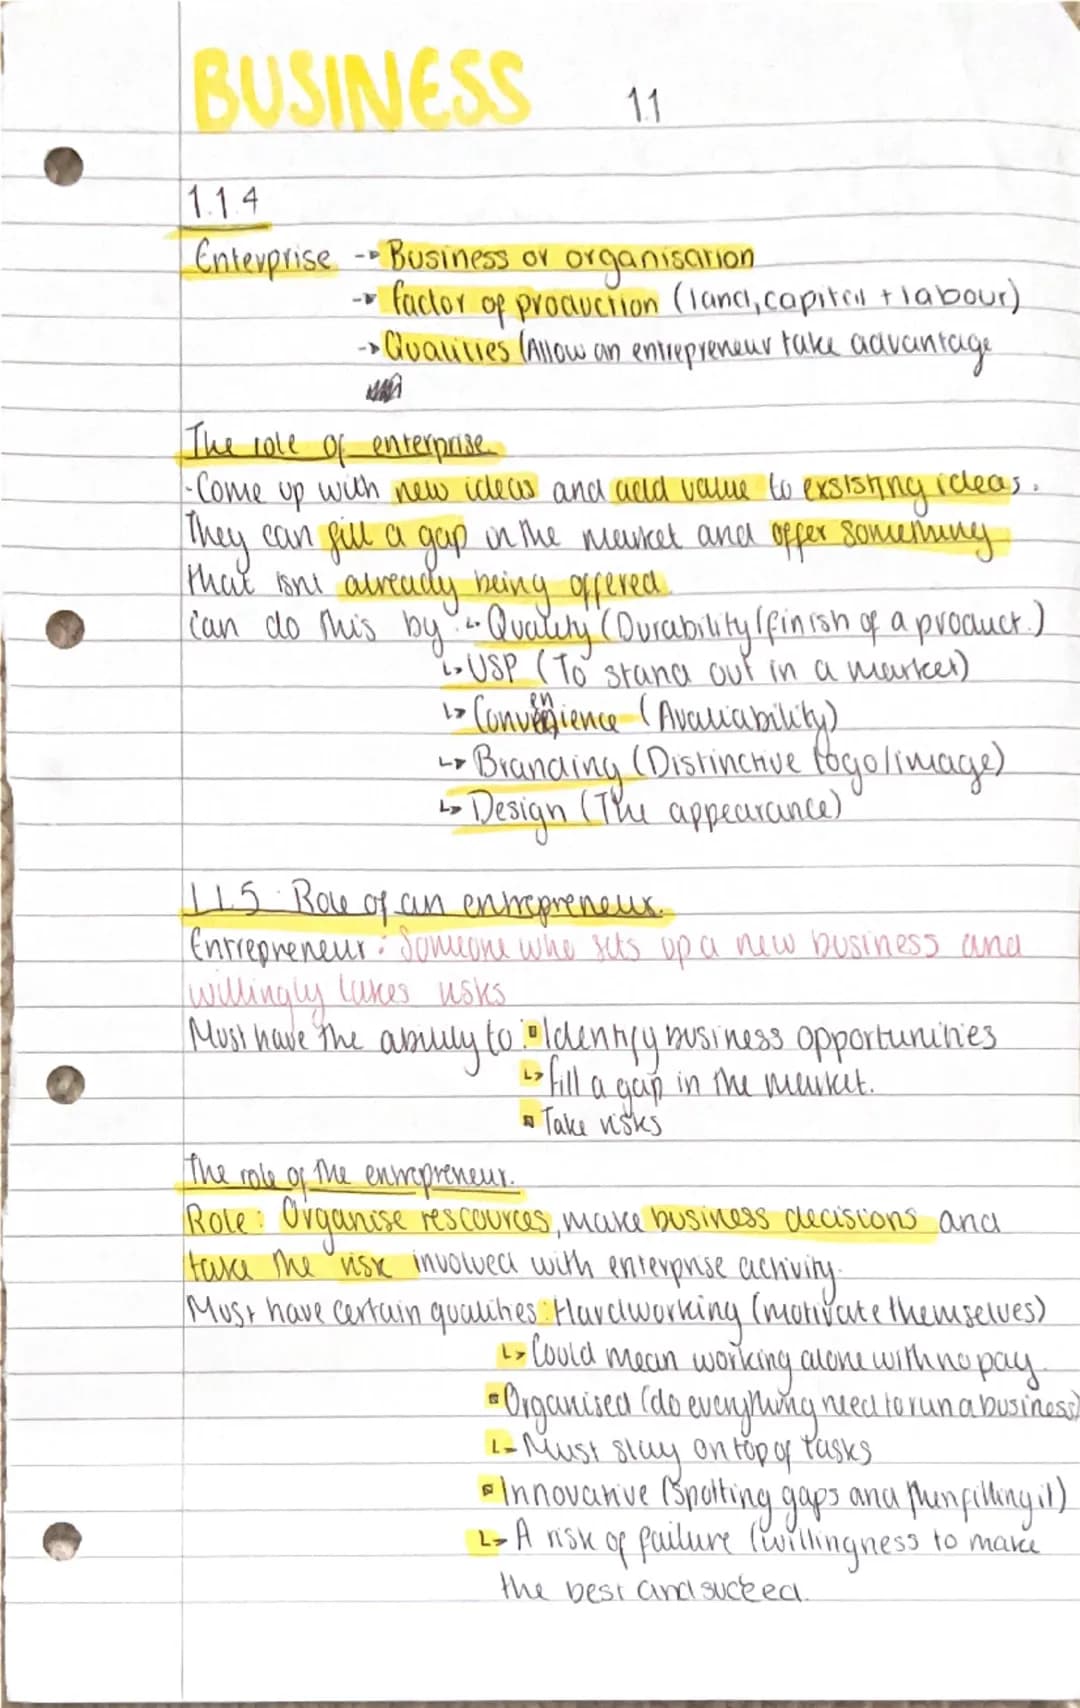 BUSINESS 1.1
1.1.4
Enterprise -> Business or organisation
-> factor of production (land, capital + labour)
-> Qualities (Allow an entrepreneur take advantage
The role of enterprise
-Come up with new ideas and add value to exsisting ideas.
They can fill a gap in the market and offer something
that isnt already being offered.
Can do this by: ↳ Quality (Durability/finish of a product.)
↳ USP (To stand out in a market)
↳ Convenience (Avaliability)
↳ Branding (Distinctive logo/image)
↳ Design (The appearance)
1.1.5 Role of an entrepreneur.
Entrepreneur: Someone who sets up a new business and
willingly takes risks
Must have the ability to: ▪ Identify business opportunities
↳ fill a gap in the market.
▪ Take risks
The role of the entrepreneur.
Role: Organise rescources, make business decisions and
take the risk involved with enterprise activity.
Must have certain qualities: Hardworking (motivate themselves)
↳ Could mean working alone with no pay.
▪ Organised (do everything need to run a business)
↳ Must stay on top of tasks
▪ Innovative (Spotting gaps and then filling it)
↳ A risk of failure (willingness to make
the best and succeed.